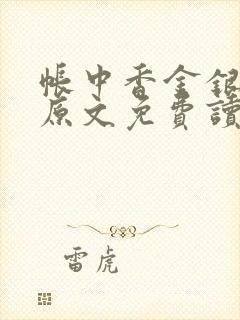 帳中香金銀
原文免費讀
雷虎